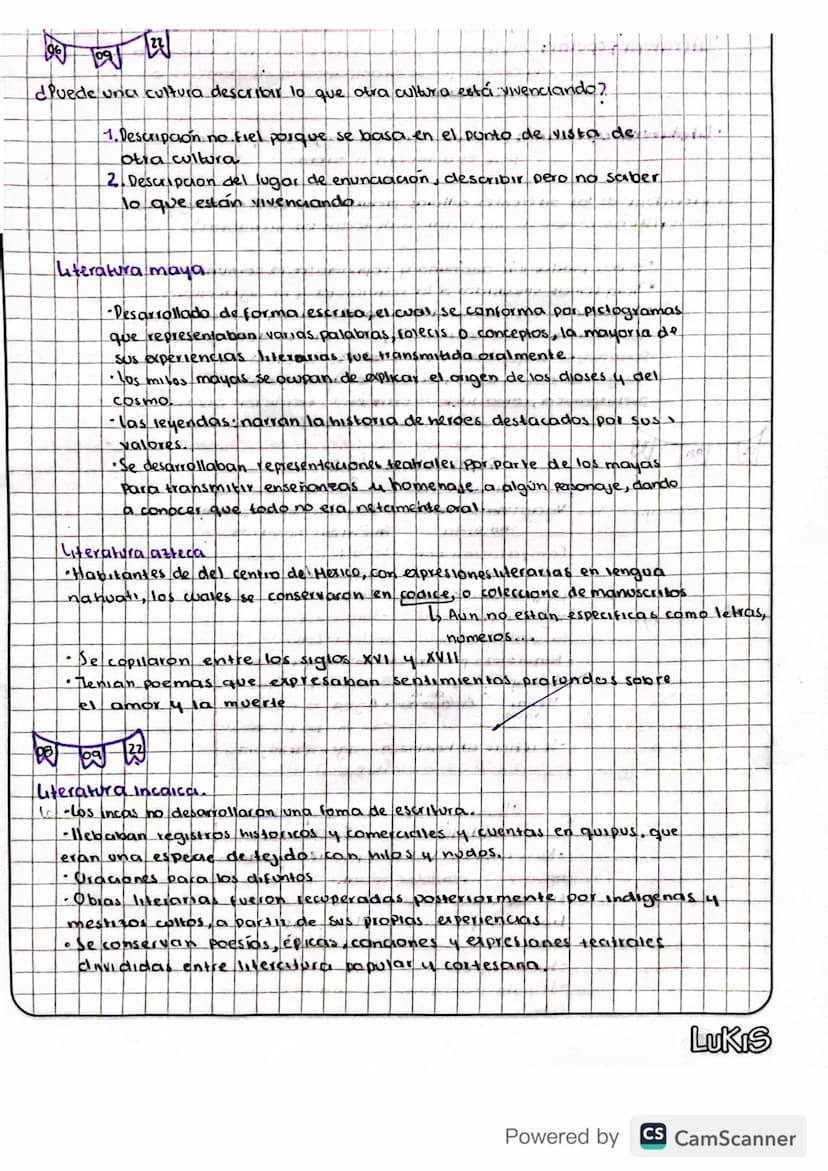 06 09 22
¿Puede una cultura describir lo que otra cultura está vivenciando?
1. Descripción no fiel porque se basa en el punto de vista de
otra cultura
2. Descripcion del lugar de enunciación, describir pero no saber
lo que están vivenciando
Literatura maya
·Desarrollado de forma escrita, el cual se conforma por pictogramas
que representaban varias palabras, o conceptos, la mayoría de
sus experiencias literarias fue transmitida oralmente.
·los mitos mayas se ocupan de explicar el origen de los dioses y del
cosmo.
·las leyendas: narran la historia de heroes destacados por sus
valores.
·Se desarrollaban representaciones teatrales por parte de los mayas
para transmitir enseñanzas u homenaje a algún personaje, dando
a conocer que todo no era netamente oral.
Literatura azteca
·Habitantes de del centro de Mexico, con expresiones literarias en lengua
nahuatl, los cuales se conservaron en codice, o coleccione de manuscritos
↳ Aun no estan especificas como letras,
números...
·Se copilaron entre los siglos XVI y XVII
·Tenian poemas que expresaban sentimientos profundos sobre
el amor y la muerte
08 09 22
Literatura incaica.
·Los incas no desarrollaron una foma de escritura.
·llebaban registros historicos y comerciales y cuentas en quipus, que
eran una especie de tejidos con hilos y nudos.
·Oraciones para los difuntos
·Obras literarias fueron recuperadas posteriormente por indigenas y
mestizos cultos, a partir de sus propias experiencias
·Se conservan poesías, épicas, canciones y expresiones teatrales
dividididas entre literatura popular y cortesana.
LUKIS
Powered by CS CamScanner